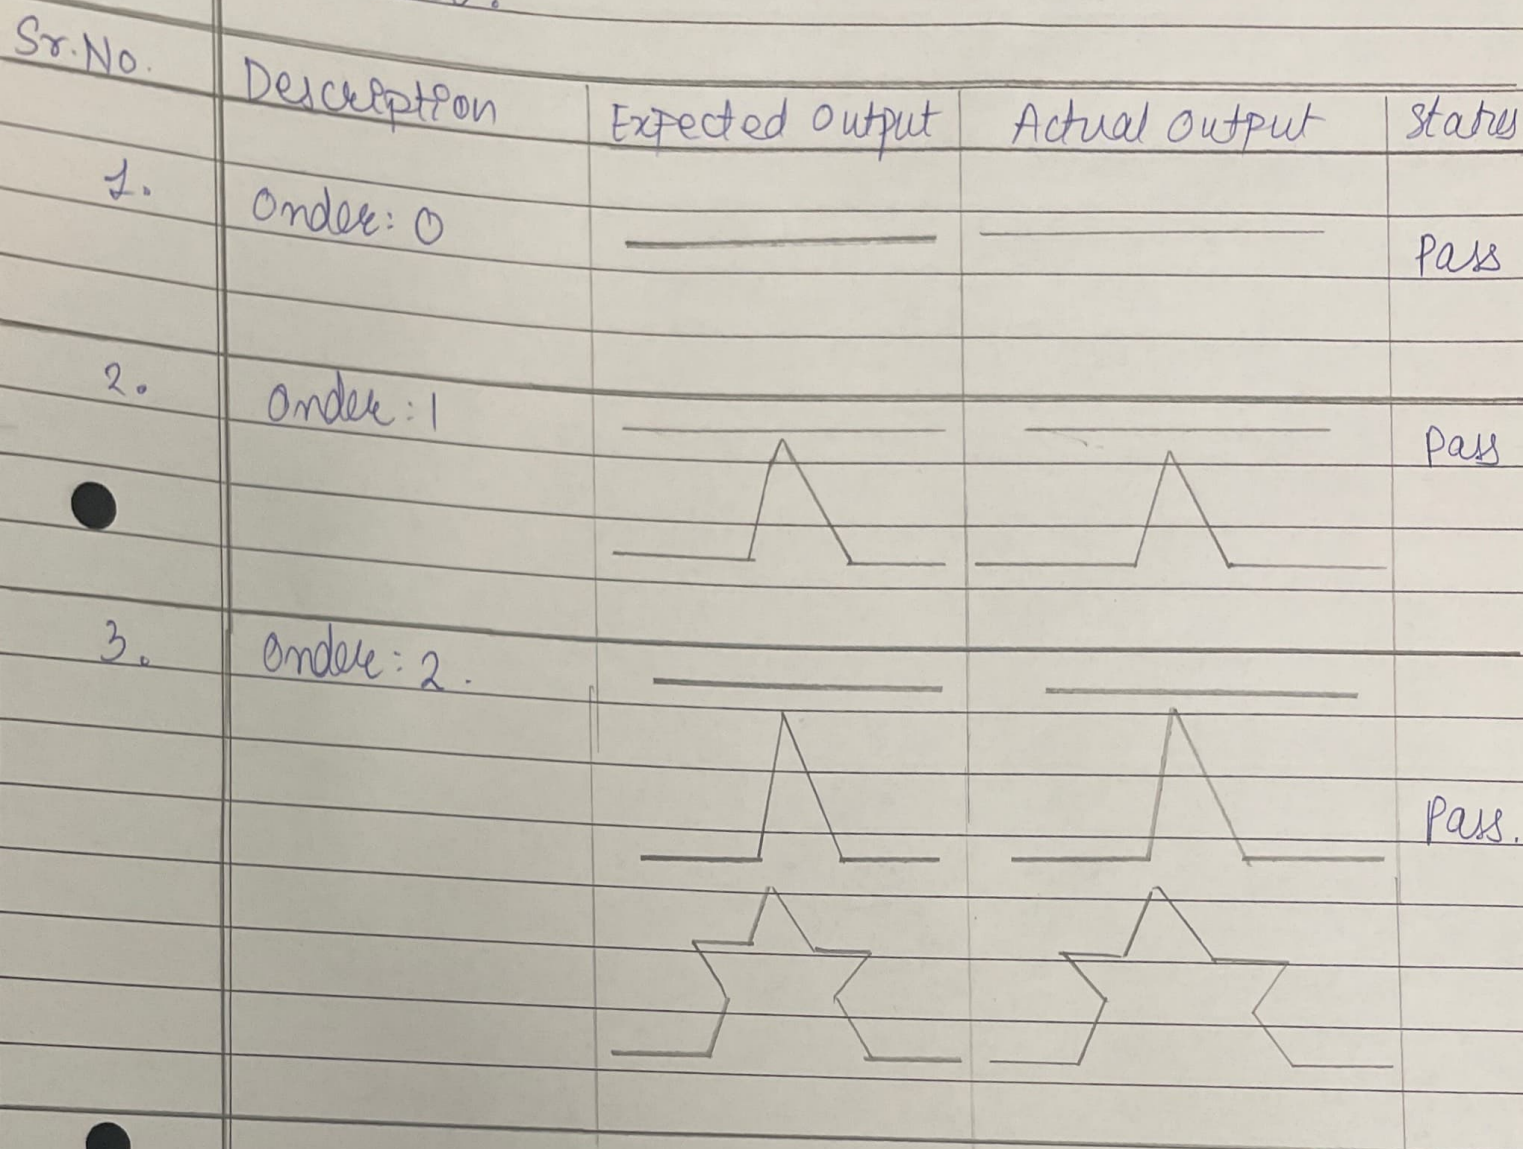 Sr.No. Description Expected Output Actual Output Status
1. Order: 0 Pass
2. Order: 1 Pass
3. Order: 2. Pass.